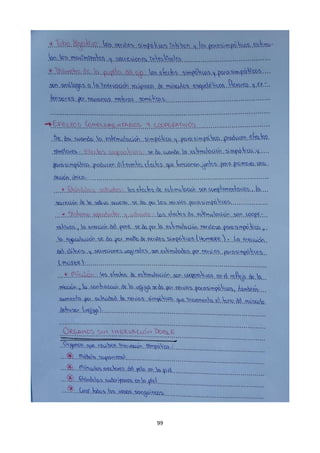 * Tubo digestivo: los nervios simpáticos inhiben y los parasimpáticos estimu-
lan los movimientos y secreciones intestinales.
* Diámetro de la pupila del ojo: los efectos simpáticos y parasimpáticos
son análogos a la inervación recíproca de músculos esqueléticos flexores y ex-
tensores por neuronas motoras somáticas.
→ EFECTOS COMPLEMENTARIOS Y COOPERATIVOS
Se da cuando la estimulación simpática y parasimpática producen efectos
similares. Efectos cooperativos: se da cuando la estimulación simpática y
parasimpática producen diferentes efectos que funcionan juntos para promover una
acción única.
* Glándulas salivales: los efectos de estimulación son complementarios, la
secreción de la saliva acuosa, se da por los nervios parasimpáticos.
* Sistema reproductor y urinario: los efectos de estimulación son coope-
rativos, la erección del pene se da por la estimulación nerviosa parasimpática,
la eyaculación se da por medio de nervios simpáticos (HOMBRE). La erección
del clítoris y secreciones vaginales son estimuladas por nervios parasimpáticos.
(MUJER).
* Micción: los efectos de estimulación son cooperativos en el reflejo de la
micción, la contracción de la vejiga se da por nervios parasimpáticos, también
aumenta por actividad de nervios simpáticos que incrementa el tono del músculo
detrusor (vejiga).
ÓRGANOS SIN INERVACIÓN DOBLE
Órganos que reciben inervación simpática:
* Médula suprarrenal.
* Músculos erectores del pelo en la piel
* Glándulas sudoríparas en la piel
* Casi todos los vasos sanguíneos
99